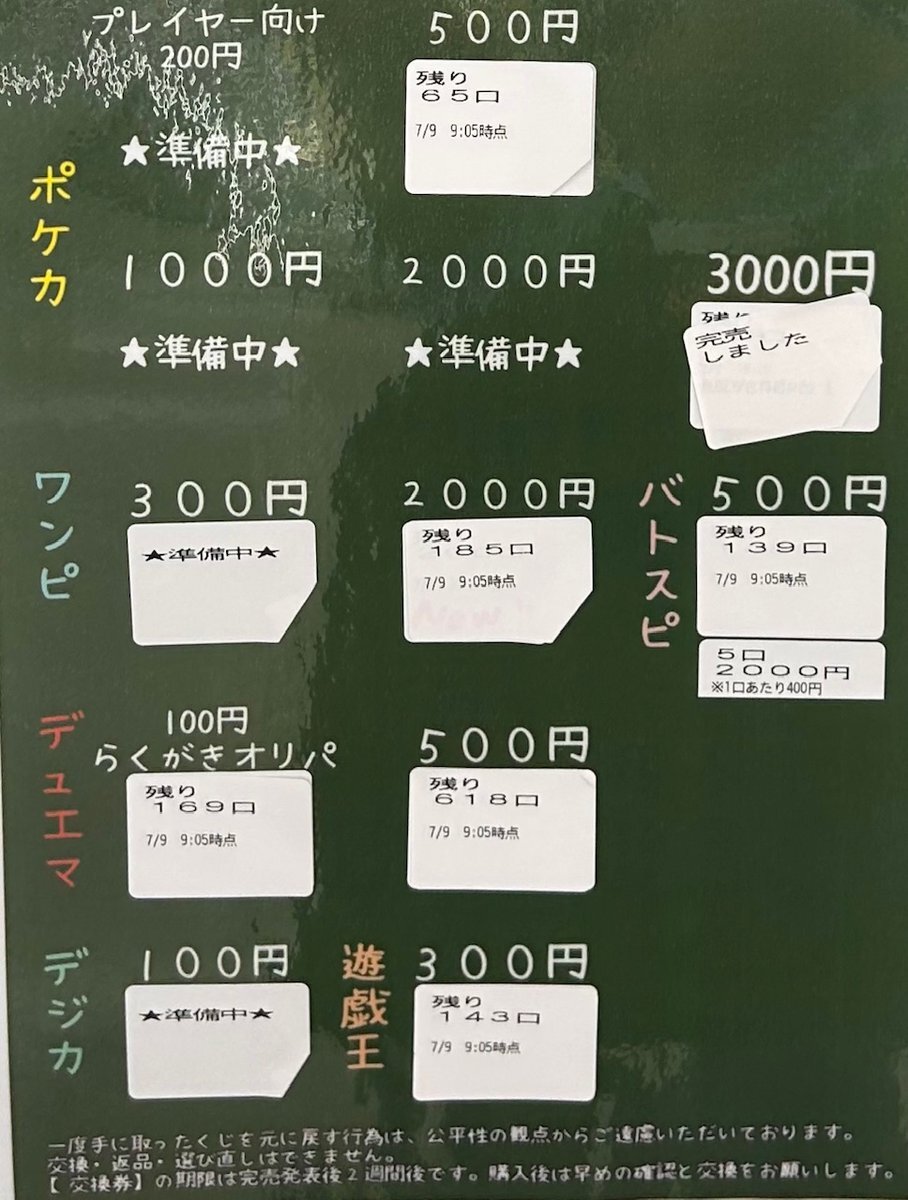 プレイヤー向け
200円
★準備中★
500円
残り
65口
7/9 9:05時点
ポケカ
1000円
★準備中★
2000円
★準備中★
3000円
残り
完売
しました
ワンピ
300円
★準備中★
2000円
残り
185口
7/9 9:05時点
New!
バトスピ
500円
残り
139口
7/9 9:05時点
5口
2000円
※1口あたり400円
デュエマ
100円
らくがきオリパ
残り
169口
7/9 9:05時点
500円
残り
618口
7/9 9:05時点
デジカ
100円
★準備中★
遊戯王
300円
残り
143口
7/9 9:05時点
一度手に取ったくじを元に戻す行為は、公平性の観点からご遠慮いただいております。
交換・返品・選び直しはできません。
【交換券】の期限は完売発表後2週間後です。購入後は早めの確認と交換をお願いします。